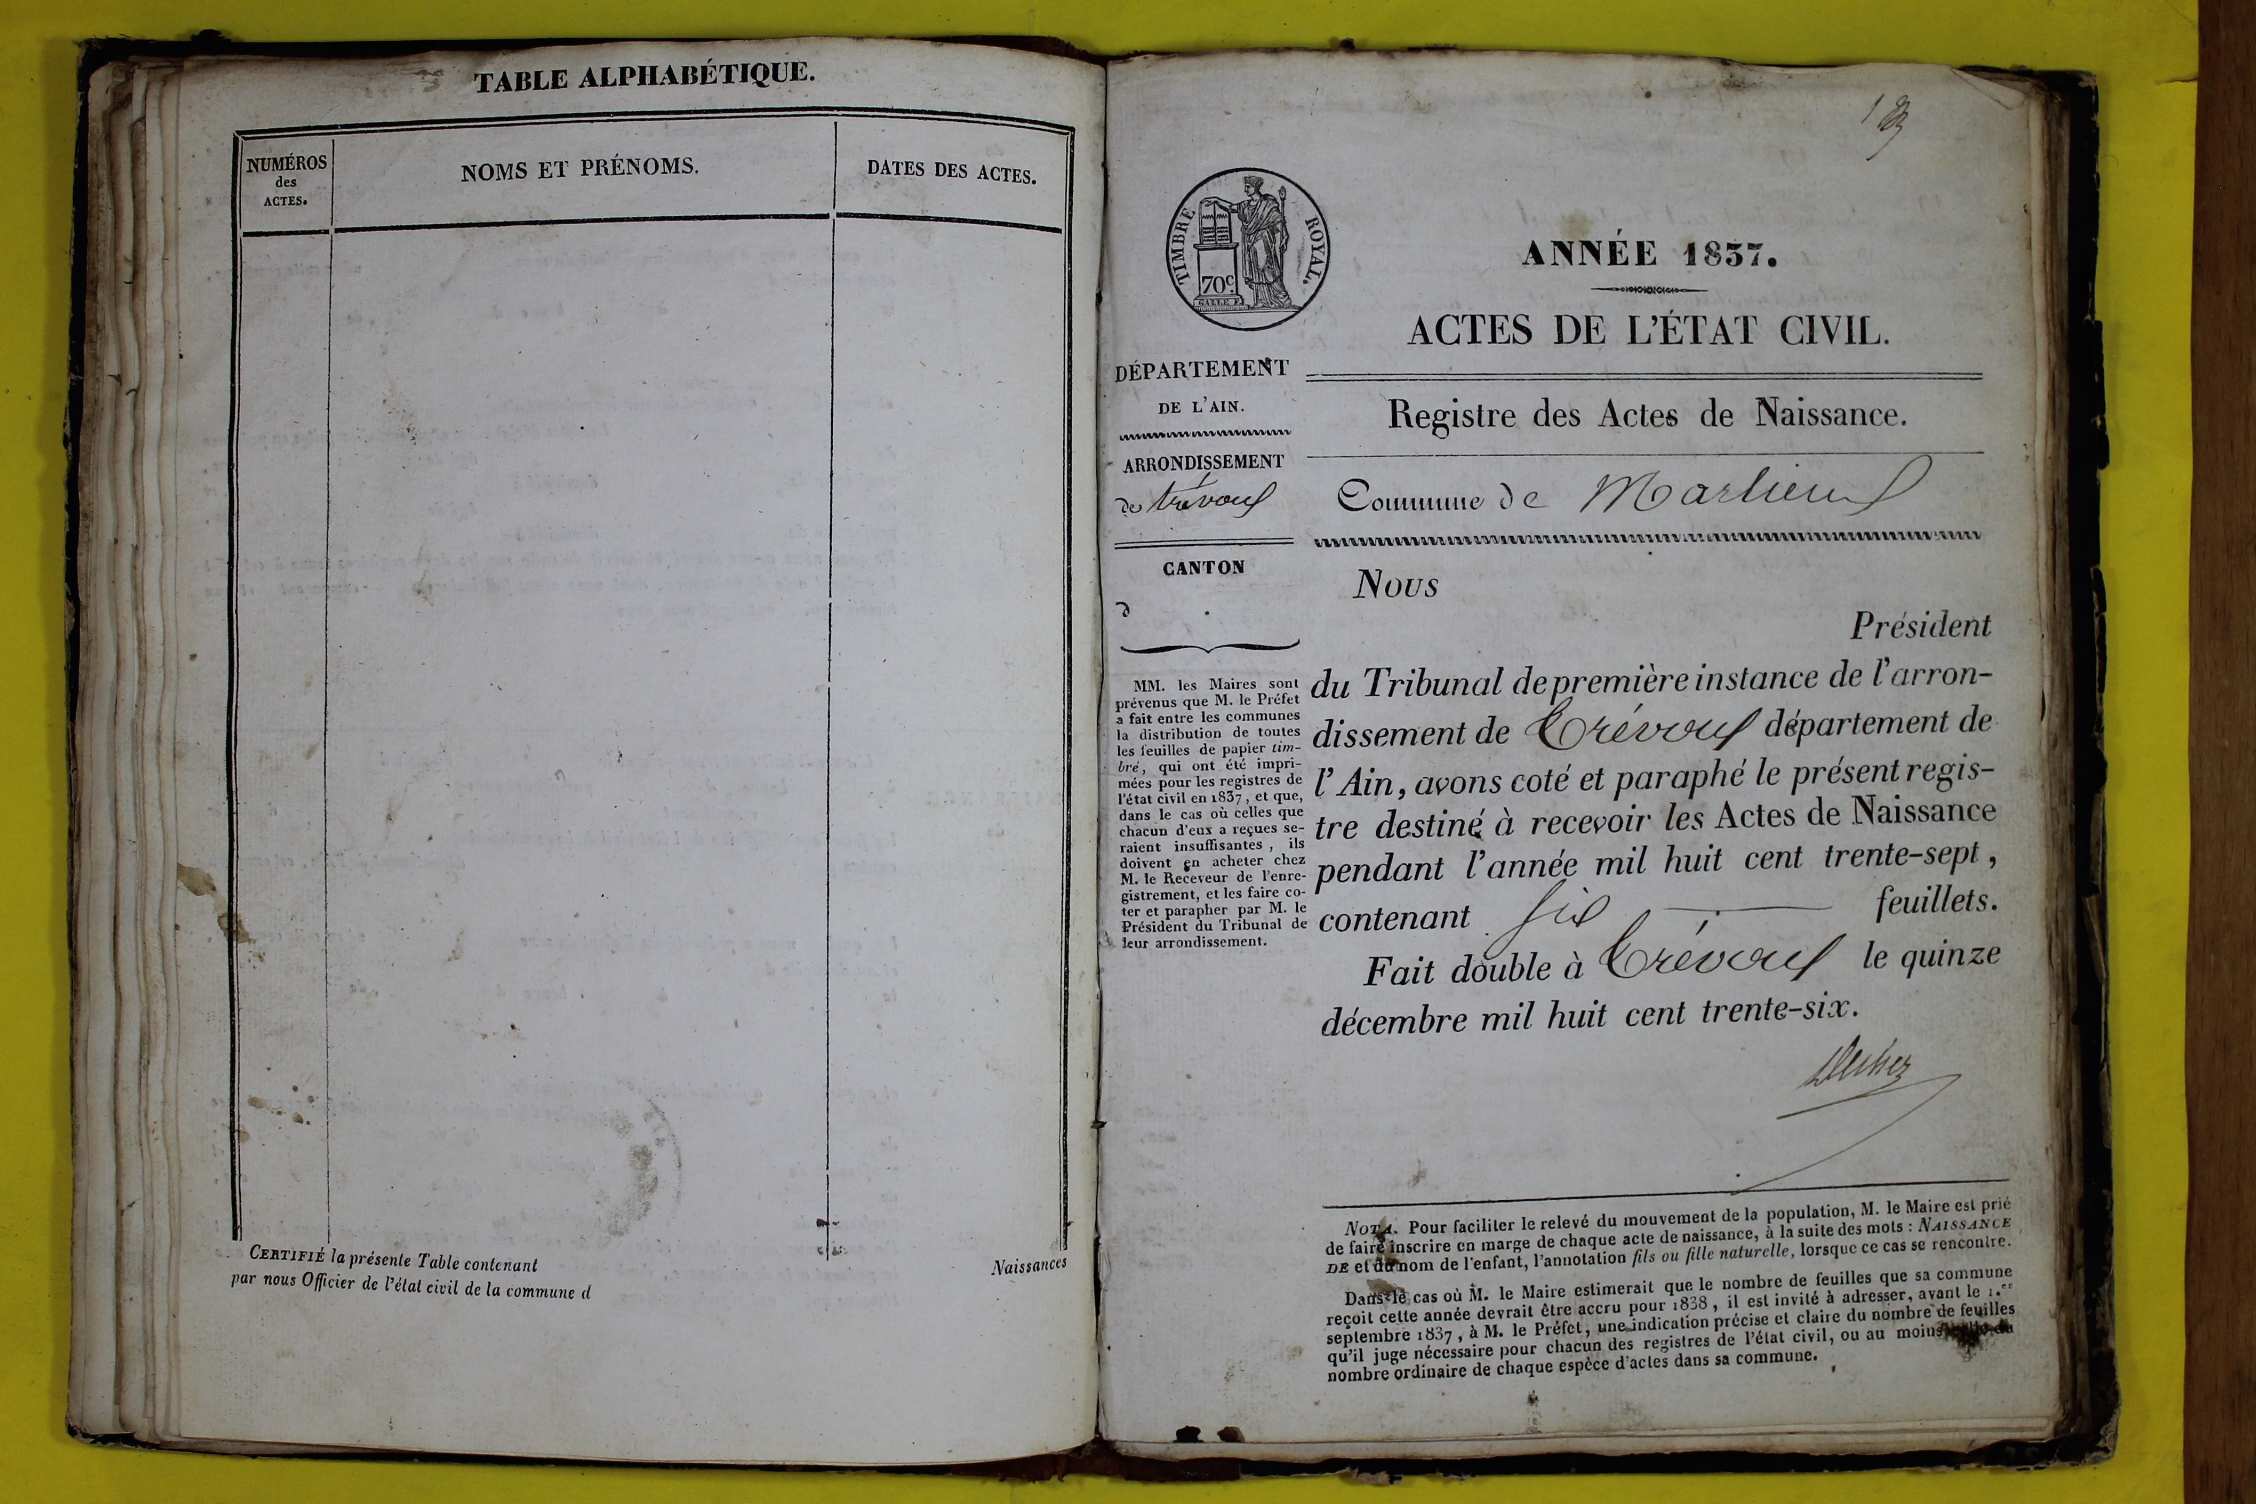 TABLE ALPHABÉTIQUE.
NUMÉROS
des
ACTES.
NOMS ET PRÉNOMS.
DATES DES ACTES.
CERTIFIÉ la présente Table contenant
Naissances
par nous Officier de l'état civil de la commune d
TIMBRE ROYAL.
70c.
GALLE F.
ANNÉE 1837.
ACTES DE L'ÉTAT CIVIL.
DÉPARTEMENT
DE L'AIN.
ARRONDISSEMENT
de trévoux
CANTON
d
MM. les Maires sont
prévenus que M. le Préfet
a fait entre les communes
la distribution de toutes
les feuilles de papier tim-
bré, qui ont été impri-
mées pour les registres de
l'état civil en 1837, et que,
dans le cas où celles que
chacun d'eux a reçues se-
raient insuffisantes, ils
doivent en acheter chez
M. le Receveur de l'enre-
gistrement, et les faire co-
ter et parapher par M. le
Président du Tribunal de
leur arrondissement.
Registre des Actes de Naissance.
Commune de Marlieux
Nous
Président
du Tribunal de première instance de l'arron-
dissement de Trévoux département de
l'Ain, avons coté et paraphé le présent regis-
tre destiné à recevoir les Actes de Naissance
pendant l'année mil huit cent trente-sept,
contenant six feuillets.
Fait double à Trévoux le quinze
décembre mil huit cent trente-six.
NOTA. Pour faciliter le relevé du mouvement de la population, M. le Maire est prié
de faire inscrire en marge de chaque acte de naissance, à la suite des mots : NAISSANCE
DE et du nom de l'enfant, l'annotation fils ou fille naturelle, lorsque ce cas se rencontre.
Dans le cas où M. le Maire estimerait que le nombre de feuilles que sa commune
reçoit cette année devrait être accru pour 1838, il est invité à adresser, avant le 1.er
septembre 1837, à M. le Préfet, une indication précise et claire du nombre de feuilles
qu'il juge nécessaire pour chacun des registres de l'état civil, ou au moins du
nombre ordinaire de chaque espèce d'actes dans sa commune.